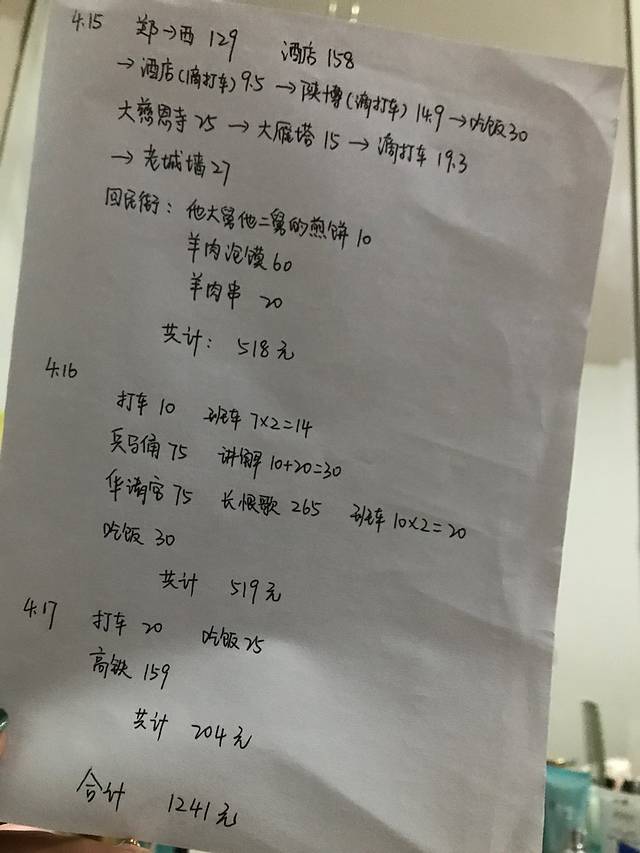 4.15 郑→西 129 酒店 158
→酒店(滴打车) 9.5 →陕博(滴打车) 14.9 →吃饭 30
大慈恩寺 25 → 大雁塔 15 → 滴打车 19.3
→ 老城墙 27
回民街: 他大舅他二舅的煎饼 10
羊肉泡馍 60
羊肉串 20
共计: 518元
4.16
打车 10 班车 7×2=14
兵马俑 75 讲解 10+20=30
华清宫 75 长恨歌 265 班车 10×2=20
吃饭 30
共计 519元
4.17 打车 20 吃饭 25
高铁 159
共计 204元
合计 1241元